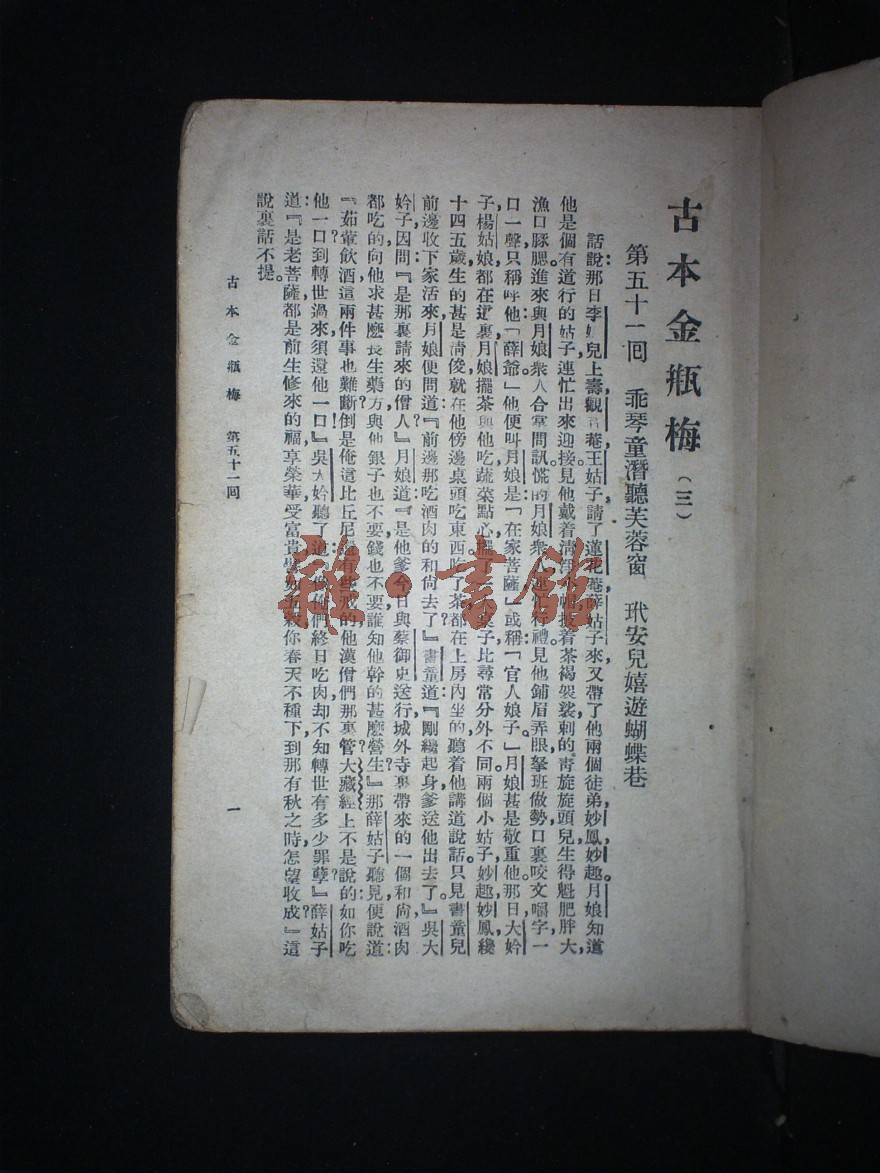 古本金瓶梅（三）
第五十一回　乖琴童潛聽芙蓉窗　玳安兒嬉遊蝴蝶巷
話說：那日李嬌兒上壽，觀音菴王姑子請了蓮花菴薛姑子來，又帶了他兩個徒弟妙鳳，妙趣。月娘知道
他是個有道行的姑子，連忙出來迎接。見他戴着清淨僧帽，披着茶褐袈裟，剃的青旋旋頭兒，生得魁肥胖大，
漁口豚腮。進來與月娘衆人合掌問訊。慌的月娘衆人連忙行禮。見他鋪眉弄眼，拏班做勢，口裏咬文嚼字，一
口一聲只稱呼他「薛爺。」他便叫月娘是「在家菩薩，」或稱「官人娘子。」月娘甚是敬重他。那日大妗
子，楊姑娘，都在這裏。月娘擺茶與他吃，蔬菜點心，擺了一桌子，比尋常分外不同。兩個小姑子，妙趣妙鳳，纔
十四五歲，生的甚是清俊，就在他傍邊桌頭吃東西。吃了茶，都在上房內坐的，聽着他講道說話。只見書童兒
前邊收下家活來，月娘便問道：『前邊那吃酒肉的和尙去了？』書童道：『剛纔起身，爹送他出去了。』吳大
妗子因問：『是那裏請來的僧人？』月娘道：『是他爹今日與蔡御史送行，城外寺裏帶來的一個和尙，酒肉
都吃的。向他求甚麽長生藥方，與他銀子也不要，錢也不要，誰知他幹的甚麽營生？』那薛姑子聽見，便說道：
『茹葷飲酒，這兩件事也難斷。倒是俺這比丘尼還有些戒的。他漢僧們那裏管！大藏經上不是說的：如你吃
他一口，到轉世過來須還他一口。』吳大妗聽了道：『像俺們終日吃肉，却不知轉世有多少罪孽？』薛姑子
道：『是老菩薩都是前生修來的福，享榮華，受富貴。譬如五穀，你春天不種下，到那有秋之時，怎望收成？』這
說裏話不提。
古本金瓶梅　第五十一回　一
雜·書館